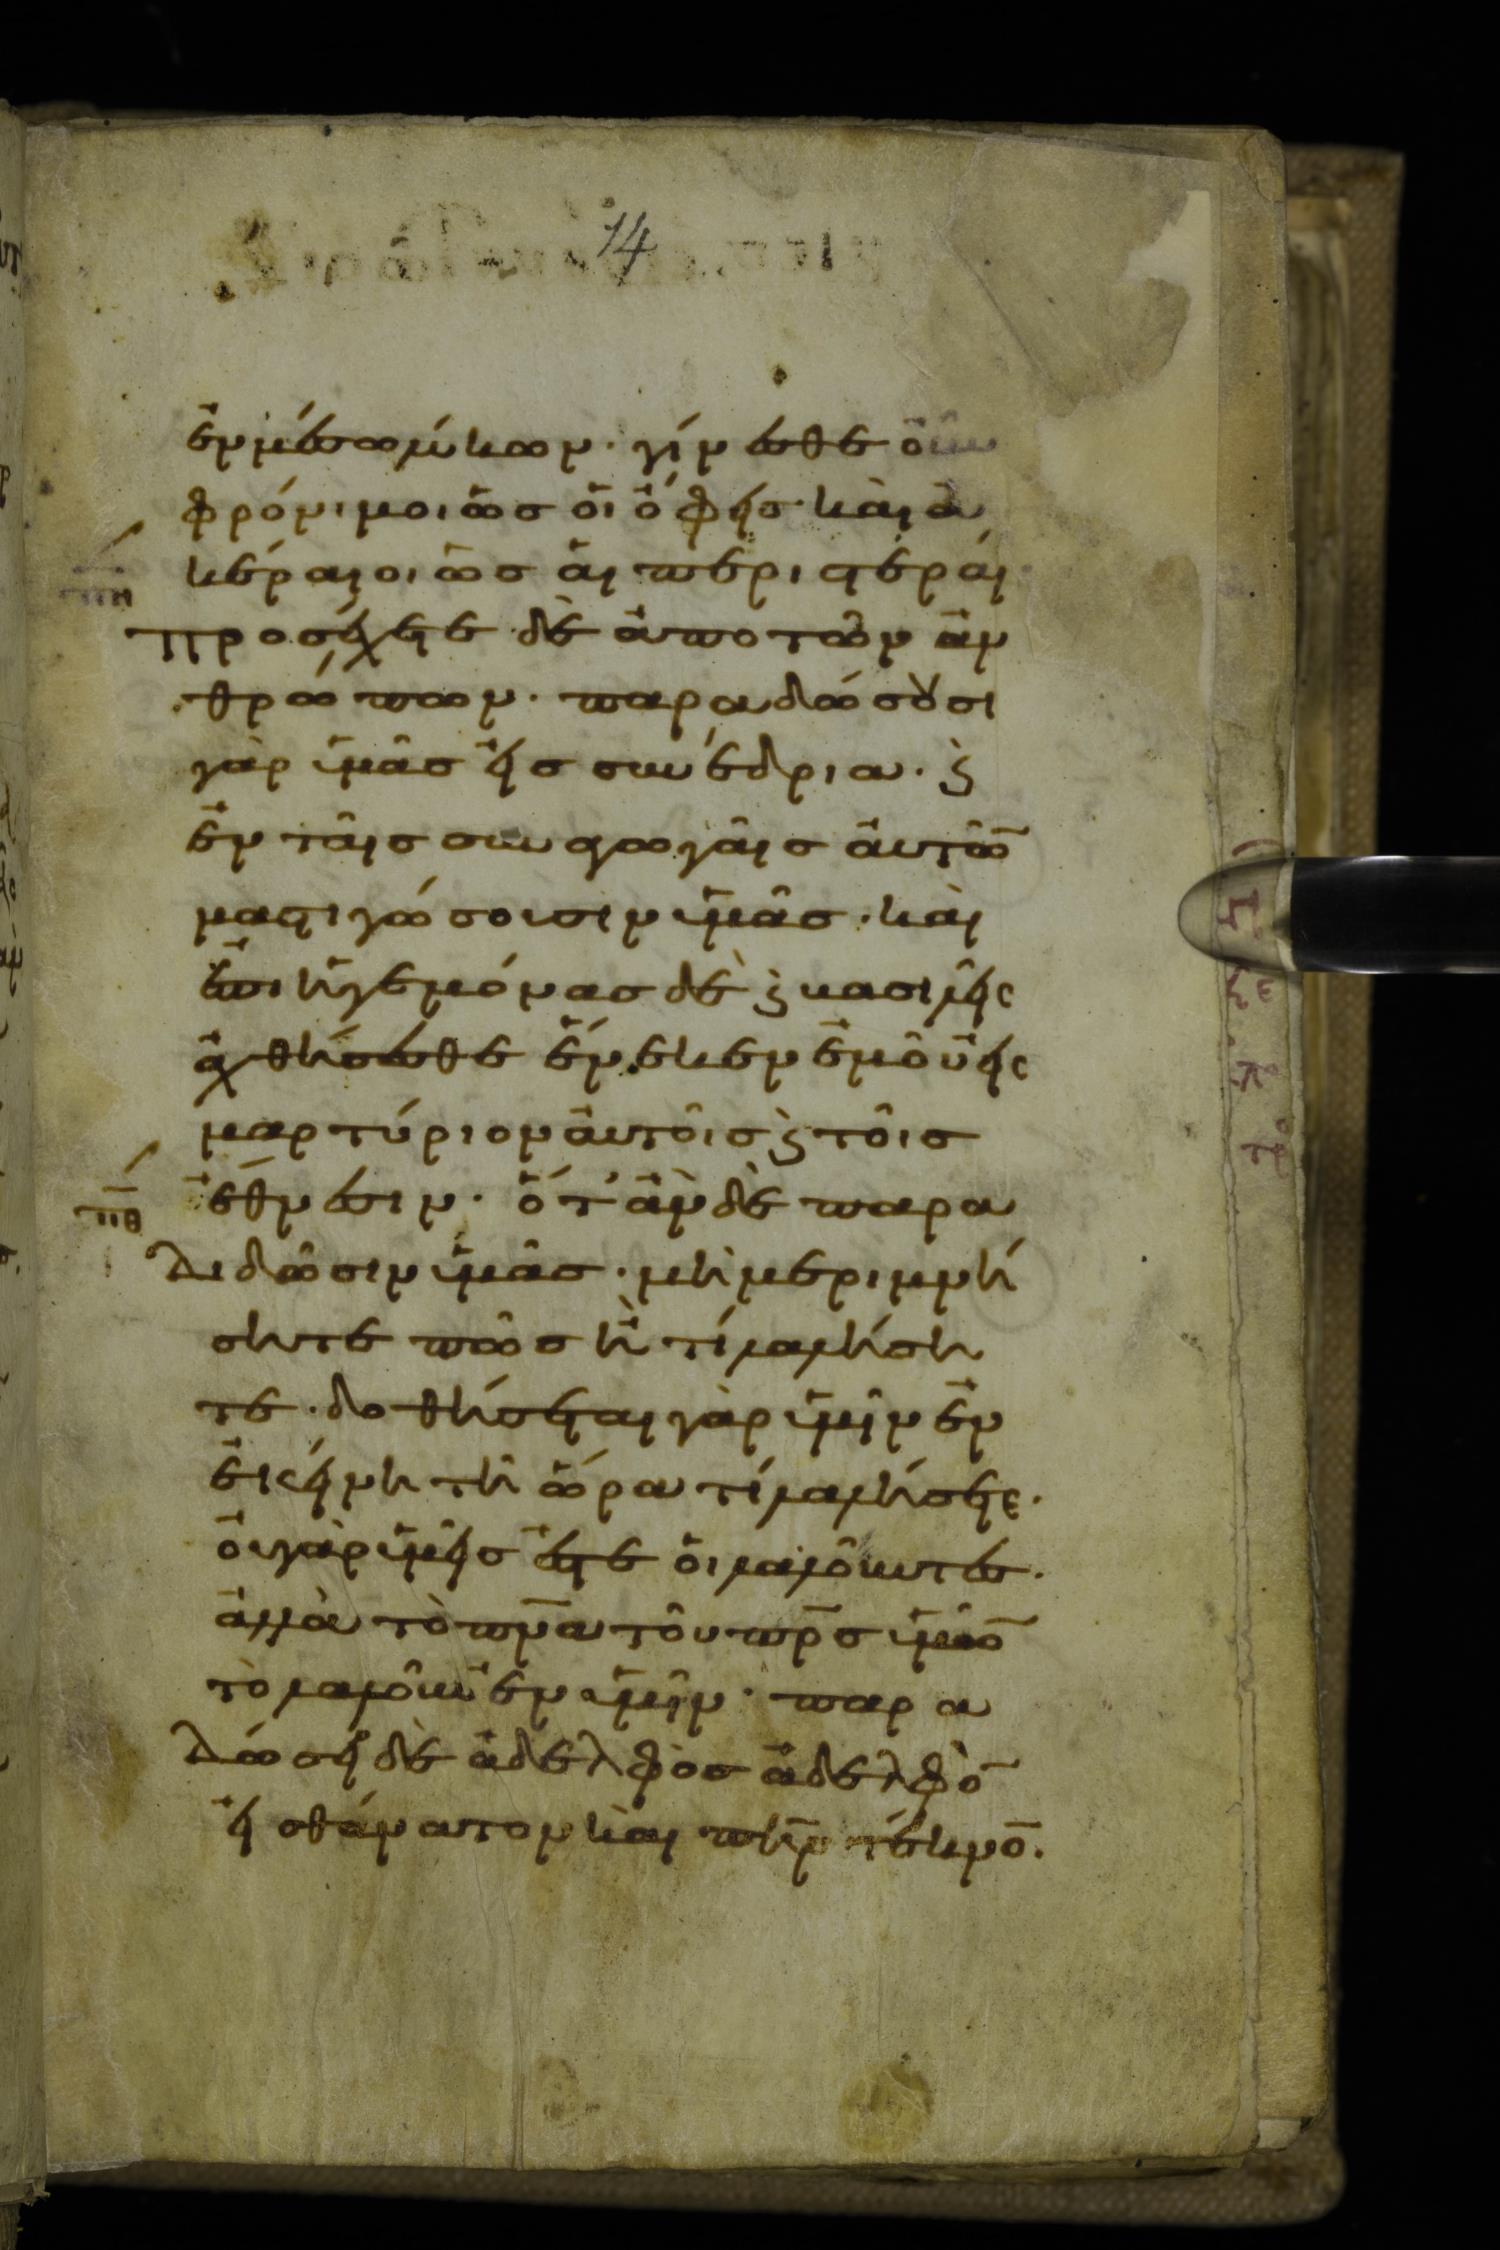 14
ἐν μέσω λύκων· γίνεσθε οὖν
φρόνιμοι ὡς οἱ ὄφεις· καὶ ἀ
κέραιοι ὡς αἱ περιστεραί·
πη
προσέχετε δὲ ἀπὸ τῶν ἀν
θρώπων· παραδώσουσι
γὰρ ὑμᾶς εἰς συνέδρια· ϗ
ἐν ταῖς συναγωγαῖς αὐτῶ̅
μαστιγώσουσιν ὑμᾶς· καὶ
ἐπὶ ἡγεμόνας δὲ ϗ βασιλεῖς
ἀχθήσεσθε ἕνεκεν ἐμοῦ εἰς
μαρτύριον αὐτοῖς ϗ τοῖς
πθ
ἔθνεσιν· ὅτ' ἂν δὲ παρα
διδῶσιν ὑμᾶς· μὴ μεριμνή
σητε πῶς ἢ τί λαλήση
τε· δοθήσεται γὰρ ὑμῖν ἐν
ἐκείνη τῆ ὥρα τί λαλήσετε·
οὐ γὰρ ὑμεῖς ἐστε οἱ λαλοῦντες·
ἀλλὰ τὸ πν̅α τοῦ πρ̅ς ὑμῶ̅
τὸ λαλοῦν ἐν ὑμῖν· παρα
δώσει δὲ ἀδελφὸς ἀδελφὸ̅
εἰς θάνατον καὶ πη̅ρ τέκνο̅·